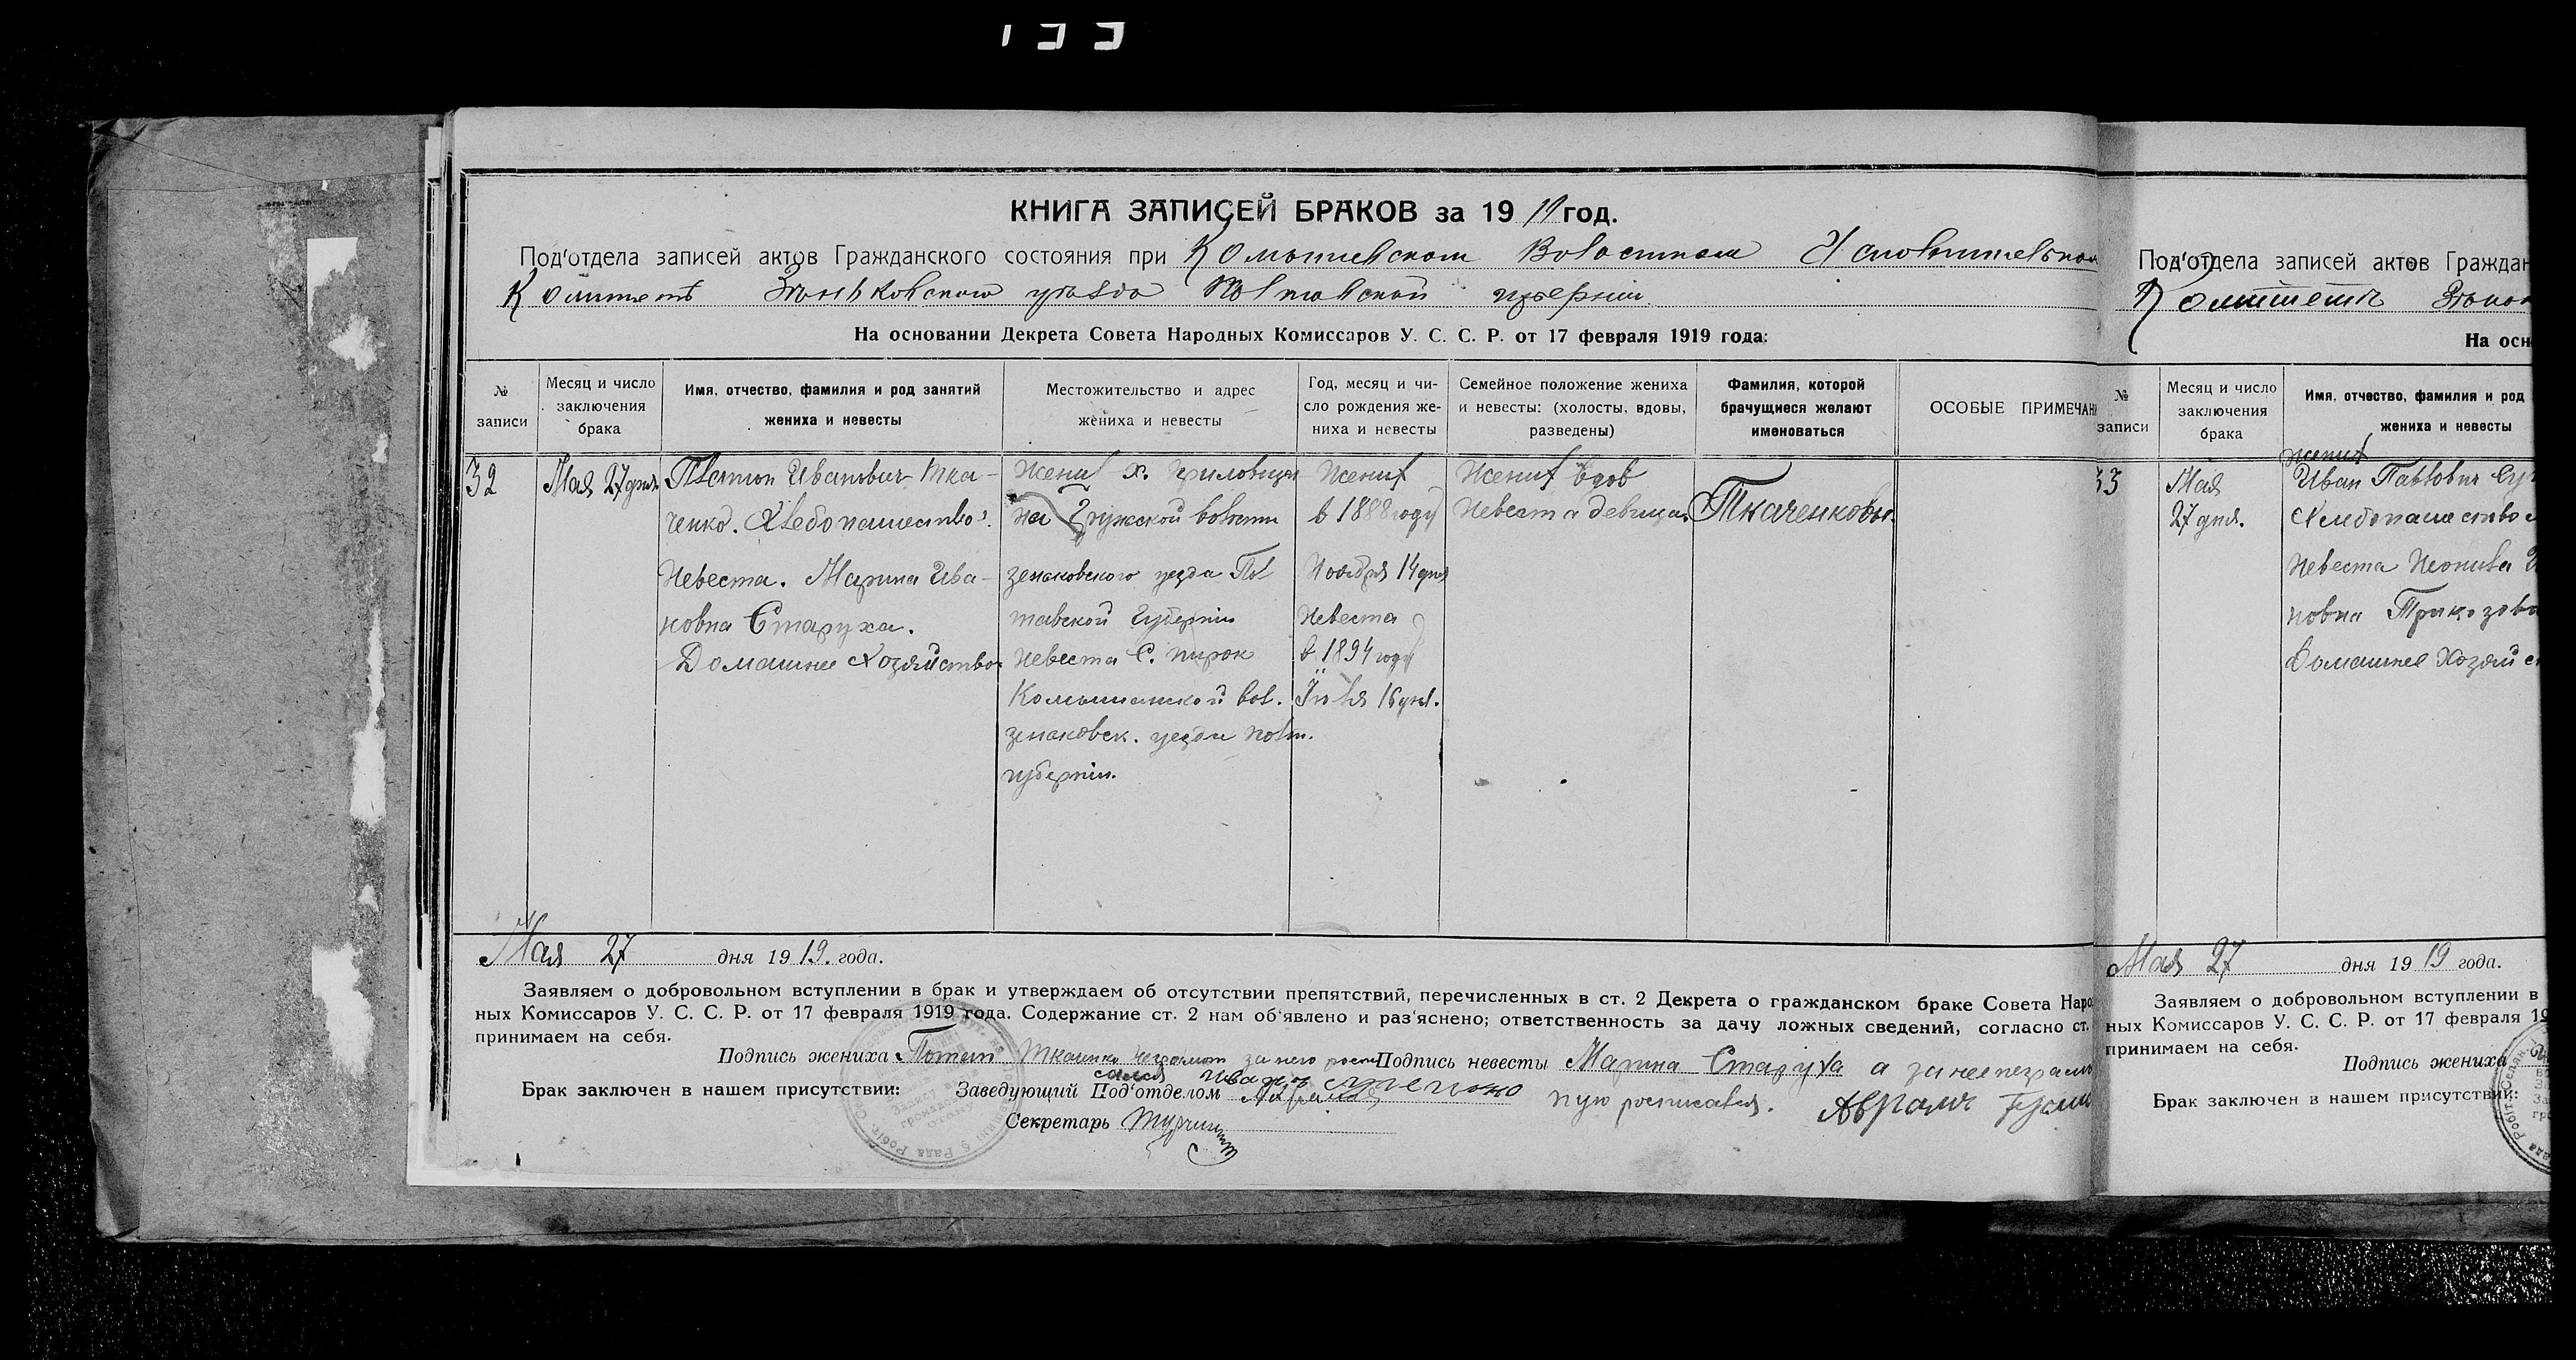 КНИГА ЗАПИСЕЙ БРАКОВ за 19 19 год.
Под'отдела записей актов Гражданского состояния при Комышевском Волостном
Комитетъ Зѣньковского уѣзда Полтавской губернии
На основании Декрета Совета Народных Комиссаров У. С. С. Р. от 17 февраля 1919 года:
№ записи
Месяц и число
заключения
брака
Имя, отчество, фамилия и род занятий
жениха и невесты
Местожительство и адрес
жениха и невесты
Год, месяц и чи-
сло рождения же-
ниха и невесты
Семейное положение жениха
и невесты: (холосты, вдовы,
разведены)
Фамилия, которой
брачущиеся желают
именоваться
ОСОБЫЕ ПРИМЕЧАН
32
Мая 27 дня
Иванович Тка-
ченко. Хлебопашество.
Невеста. Марина Ива-
новна Старуха.
Домашнее Хозяйство
Жених х.
на Грунской волости
зенковского уезда Пол
тавской Губернии
Невеста С.
Комышанской вол.
зенковск. уезда полт.
губернии.
Жених
в 1888 году
Ноября 14 дня
Невеста
в 1894 году
Июля 16 дня.
Жених вдов
Невеста девица.
Ткаченковы.
Мая 27 дня 19 19. года.
Заявляем о добровольном вступлении в брак и утверждаем об отсутствии препятствий, перечисленных в ст. 2 Декрета о гражданском браке Совета Наро
ных Комиссаров У. С. С. Р. от 17 февраля 1919 года. Содержание ст. 2 нам об'явлено и раз'яснено; ответственность за дачу ложных сведений, согласно ст.
принимаем на себя.
Подпись жениха неграмот за него роспи
сался Иван
Подпись невесты Марина Старуха а за нее неграмот
ную росписался. Аврамъ
Брак заключен в нашем присутствии: Заведующий Под'отделом
Секретарь
Под'отдела записей актов Граждан
Комитетъ
На осн
№ записи
Месяц и число
заключения
брака
Имя, отчество, фамилия и род
жениха и невесты
33
Мая
27 дня.
жених
Иван Павлович
Хлебопашество
Невеста
новна
Домашнее Хозяйс
Мая 27 дня 19 19 года.
Заявляем о добровольном вступлении в
ных Комиссаров У. С. С. Р. от 17 февраля 19
принимаем на себя.
Подпись жениха
Брак заключен в нашем присутствии: